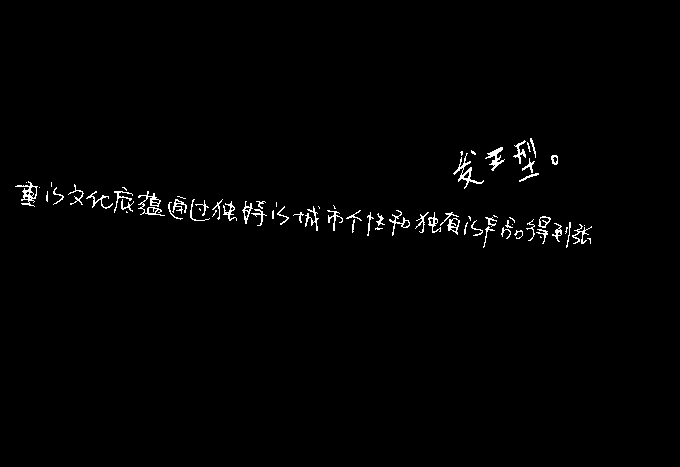 发玊型。
重的文化底蕴通过独特的城市个性和独有的产品得到张